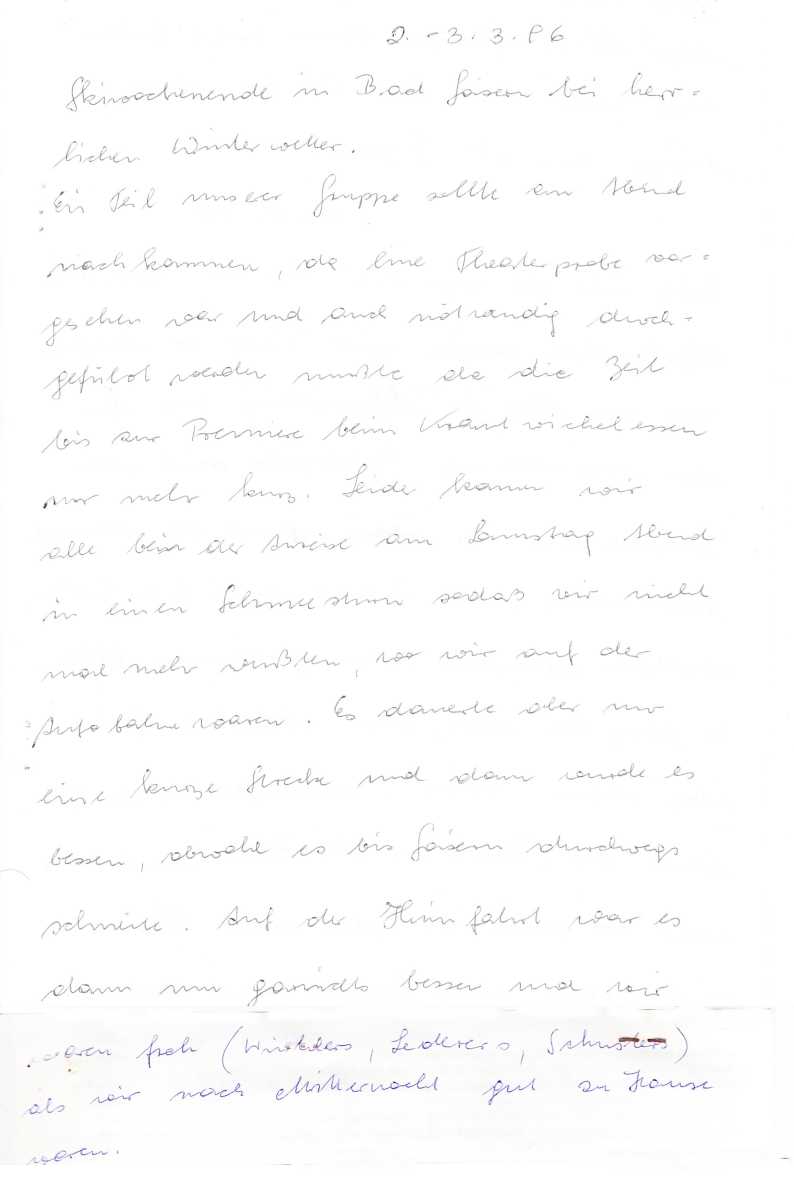 2. - 3. 3. 86
Skiwochenende in Bad Goisern bei herr-
lichen Winterwetter.
Ein Teil unserer Gruppe sollte am Abend
nachkommen, da eine Theaterprobe vor-
gesehen war und auch notwendig durch-
geführt werden mußte da die Zeit
bis zur Premiere beim Krautwickelessen
nur mehr kurz. Leider kamen wir
alle bei der Anreise am Samstag Abend
in einen Schneesturm sodaß wir nicht
mal mehr wußten, wo wir auf der
Autobahn waren. Es dauerte aber nur
eine kurze Strecke und dann wurde es
besser, obwohl es bis Goisern durchwegs
schneite. Auf der Heimfahrt war es
dann um garnichts besser und wir
waren froh (Winklers, Lederers, Schusters)
als wir nach Mitternacht gut zu Hause
waren.